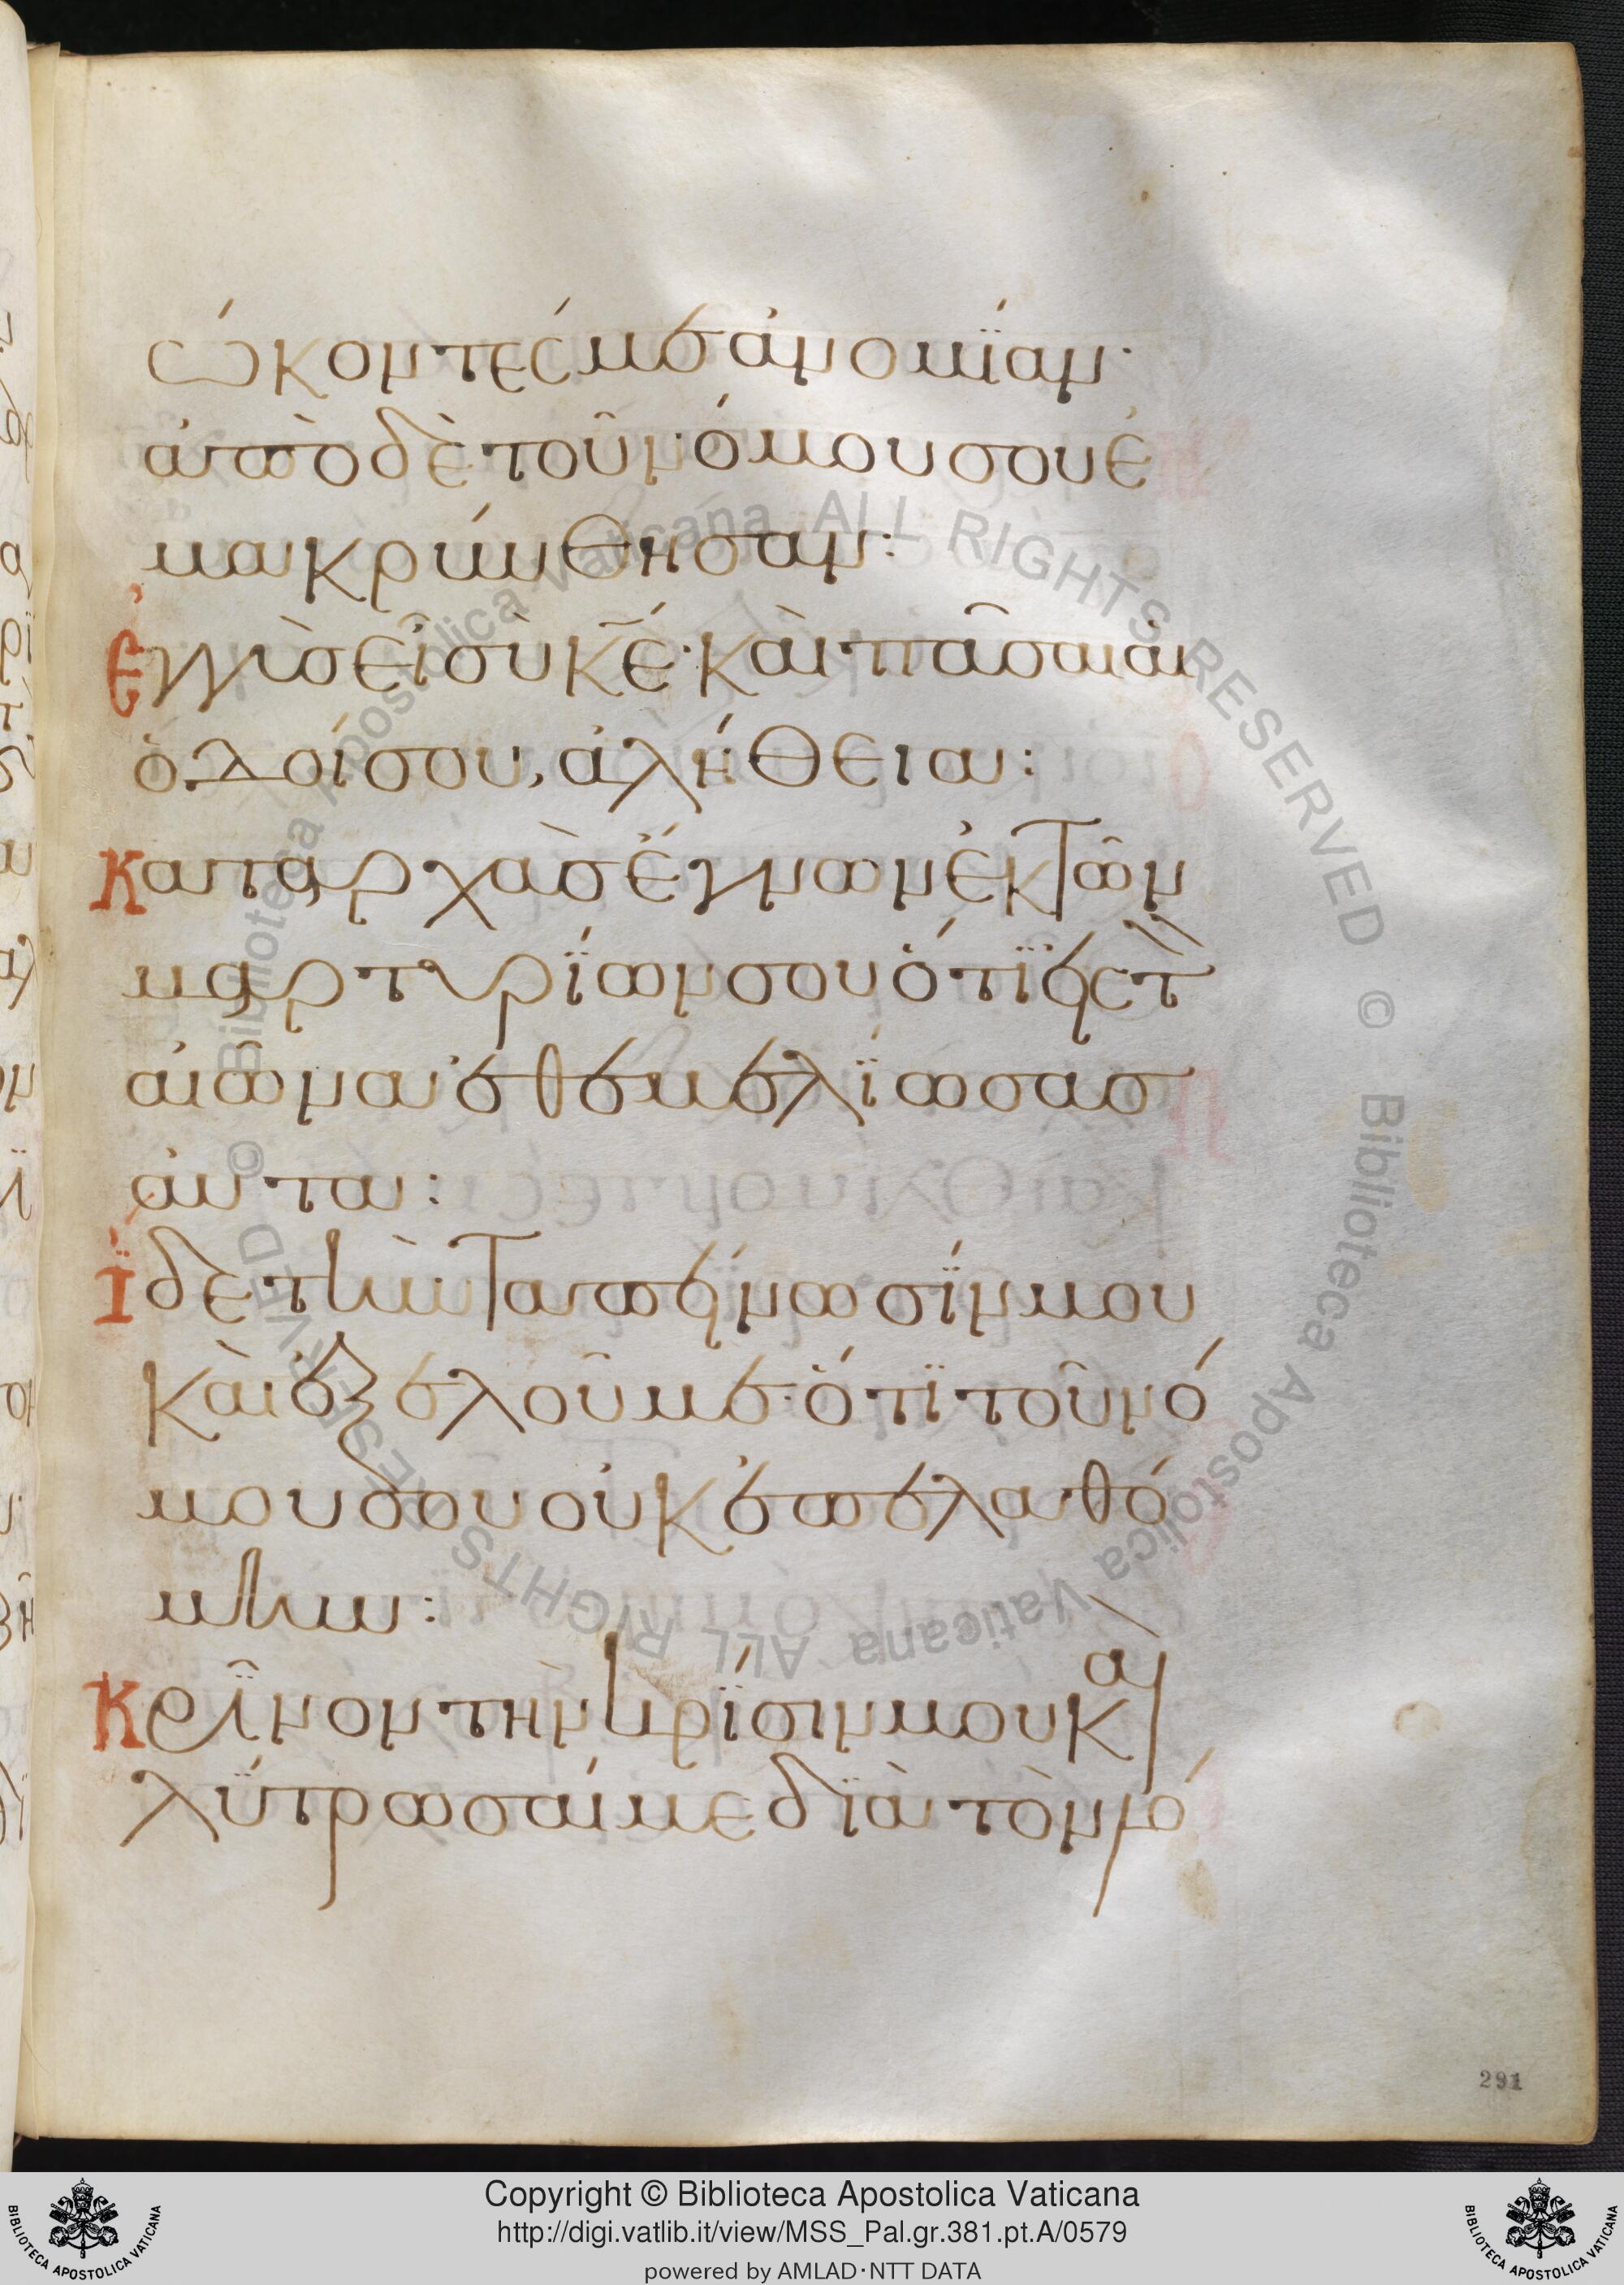 ώκοντές με ἀνομίαν·
ἀπὸ δὲ τοῦ νόμου σου ἐ
μακρύνθησαν:
ἐγγὺσ εἶ σὺ κ̅ε̅· καὶ πᾶσαι αἱ
ὁδοί σου, ἀλήθεια:
Καταρχὰσ ἔγνων ἐκ τῶν
μαρτυρΐων σου ὅτϊ εἰς τ(ὸν)
αἰῶνα ἐθεμελΐωσασ
αὐτα:
ΐδε τὴν ταπείνωσΐν μου
καὶ ἐξελοῦ με· ὅτϊ τοῦ νό
μου σου οὐκ ἐπελαθό
μην:
Κρῖνον τὴν κρΐσιν μου κ(αὶ)
λύτρωσαί με δϊὰ τὸν λό
291
© Biblioteca Apostolica Vaticana ALL RIGHTS RESERVED © Biblioteca Apostolica Vaticana ALL RIGHTS RESERVED
Copyright © Biblioteca Apostolica Vaticana
http://digi.vatlib.it/view/MSS_Pal.gr.381.pt.A/0579
powered by AMLAD·NTT DATA
BIBLIOTECA APOSTOLICA VATICANA
BIBLIOTECA APOSTOLICA VATICANA